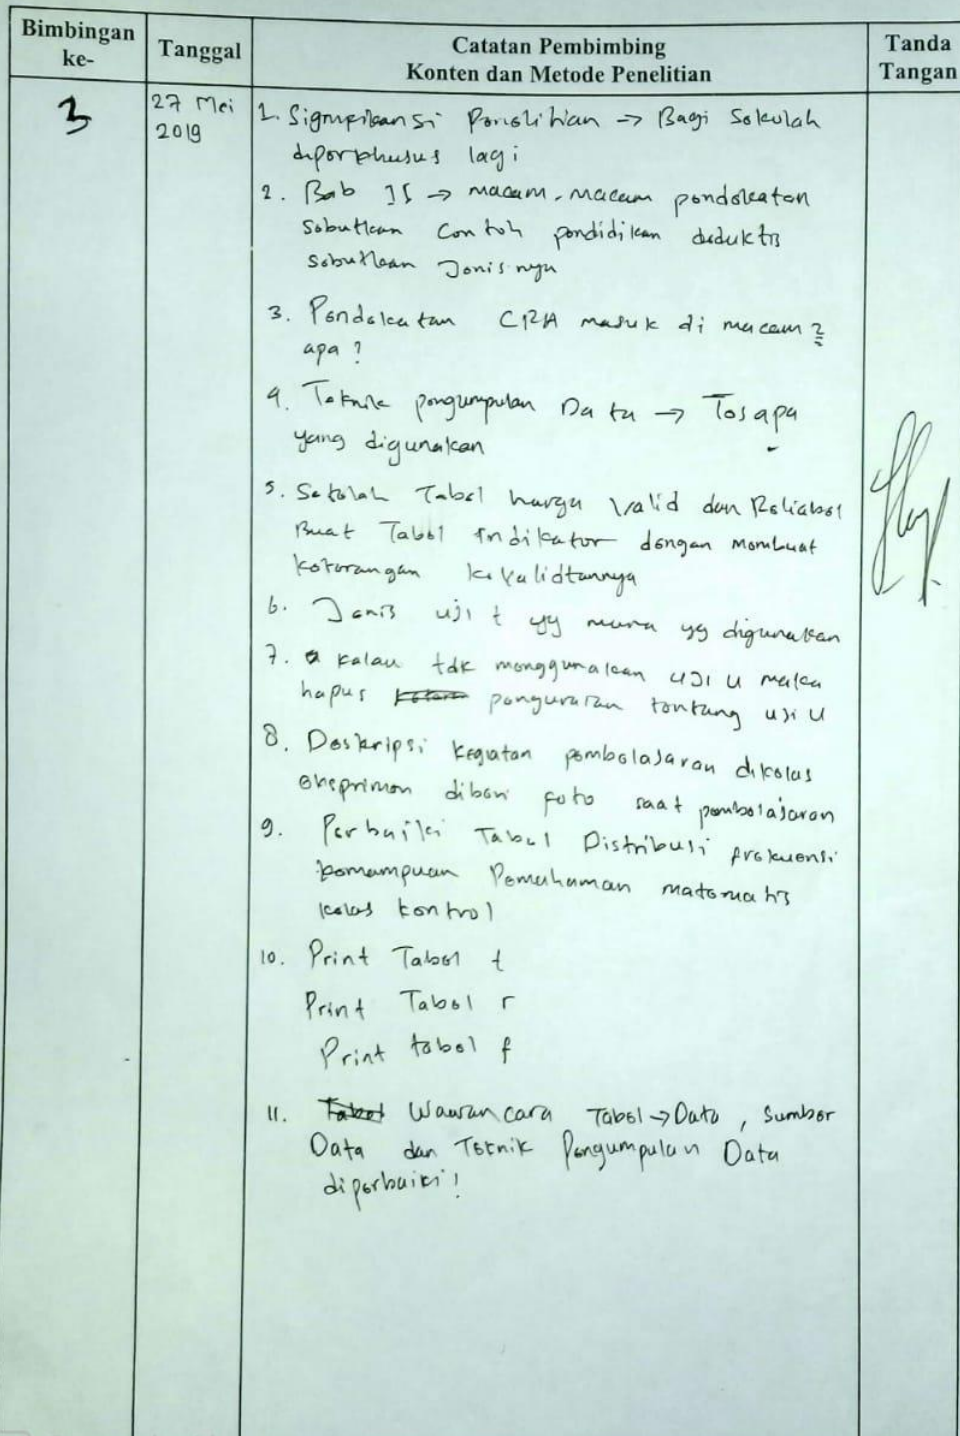 Bimbingan ke-
Tanggal
Catatan Pembimbing
Konten dan Metode Penelitian
Tanda Tangan
3
27 Mei
2019
1. Signifikansi Penelitian → Bagi Sekolah
diperkhusus lagi
2. Bab II → macam-macam pendekatan
sebutkan contoh pendidikan deduktif
sebutkan Jenisnya
3. Pendekatan CRA masuk di macam2
apa ?
4. Teknik pengumpulan Data → Tes apa
yang digunakan
5. Setelah Tabel harga Valid dan Reliabel
Buat Tabel Indikator dengan Membuat
keterangan kevalidtannya
6. Jenis uji t yg mana yg digunakan
7. kalau tdk menggunakan uji u maka
hapus penguraian tentang uji U
8. Deskripsi kegiatan pembelajaran dikelas
eksprimen diberi foto saat pembelajaran
9. Perbaiki Tabel Distribusi frekuensi
kemampuan Pemahaman matematis
kelas kontrol
10. Print Tabel t
Print Tabel r
Print tabel f
11. Tabel Wawancara Tabel → Data, Sumber
Data dan Teknik Pengumpulan Data
diperbaiki!